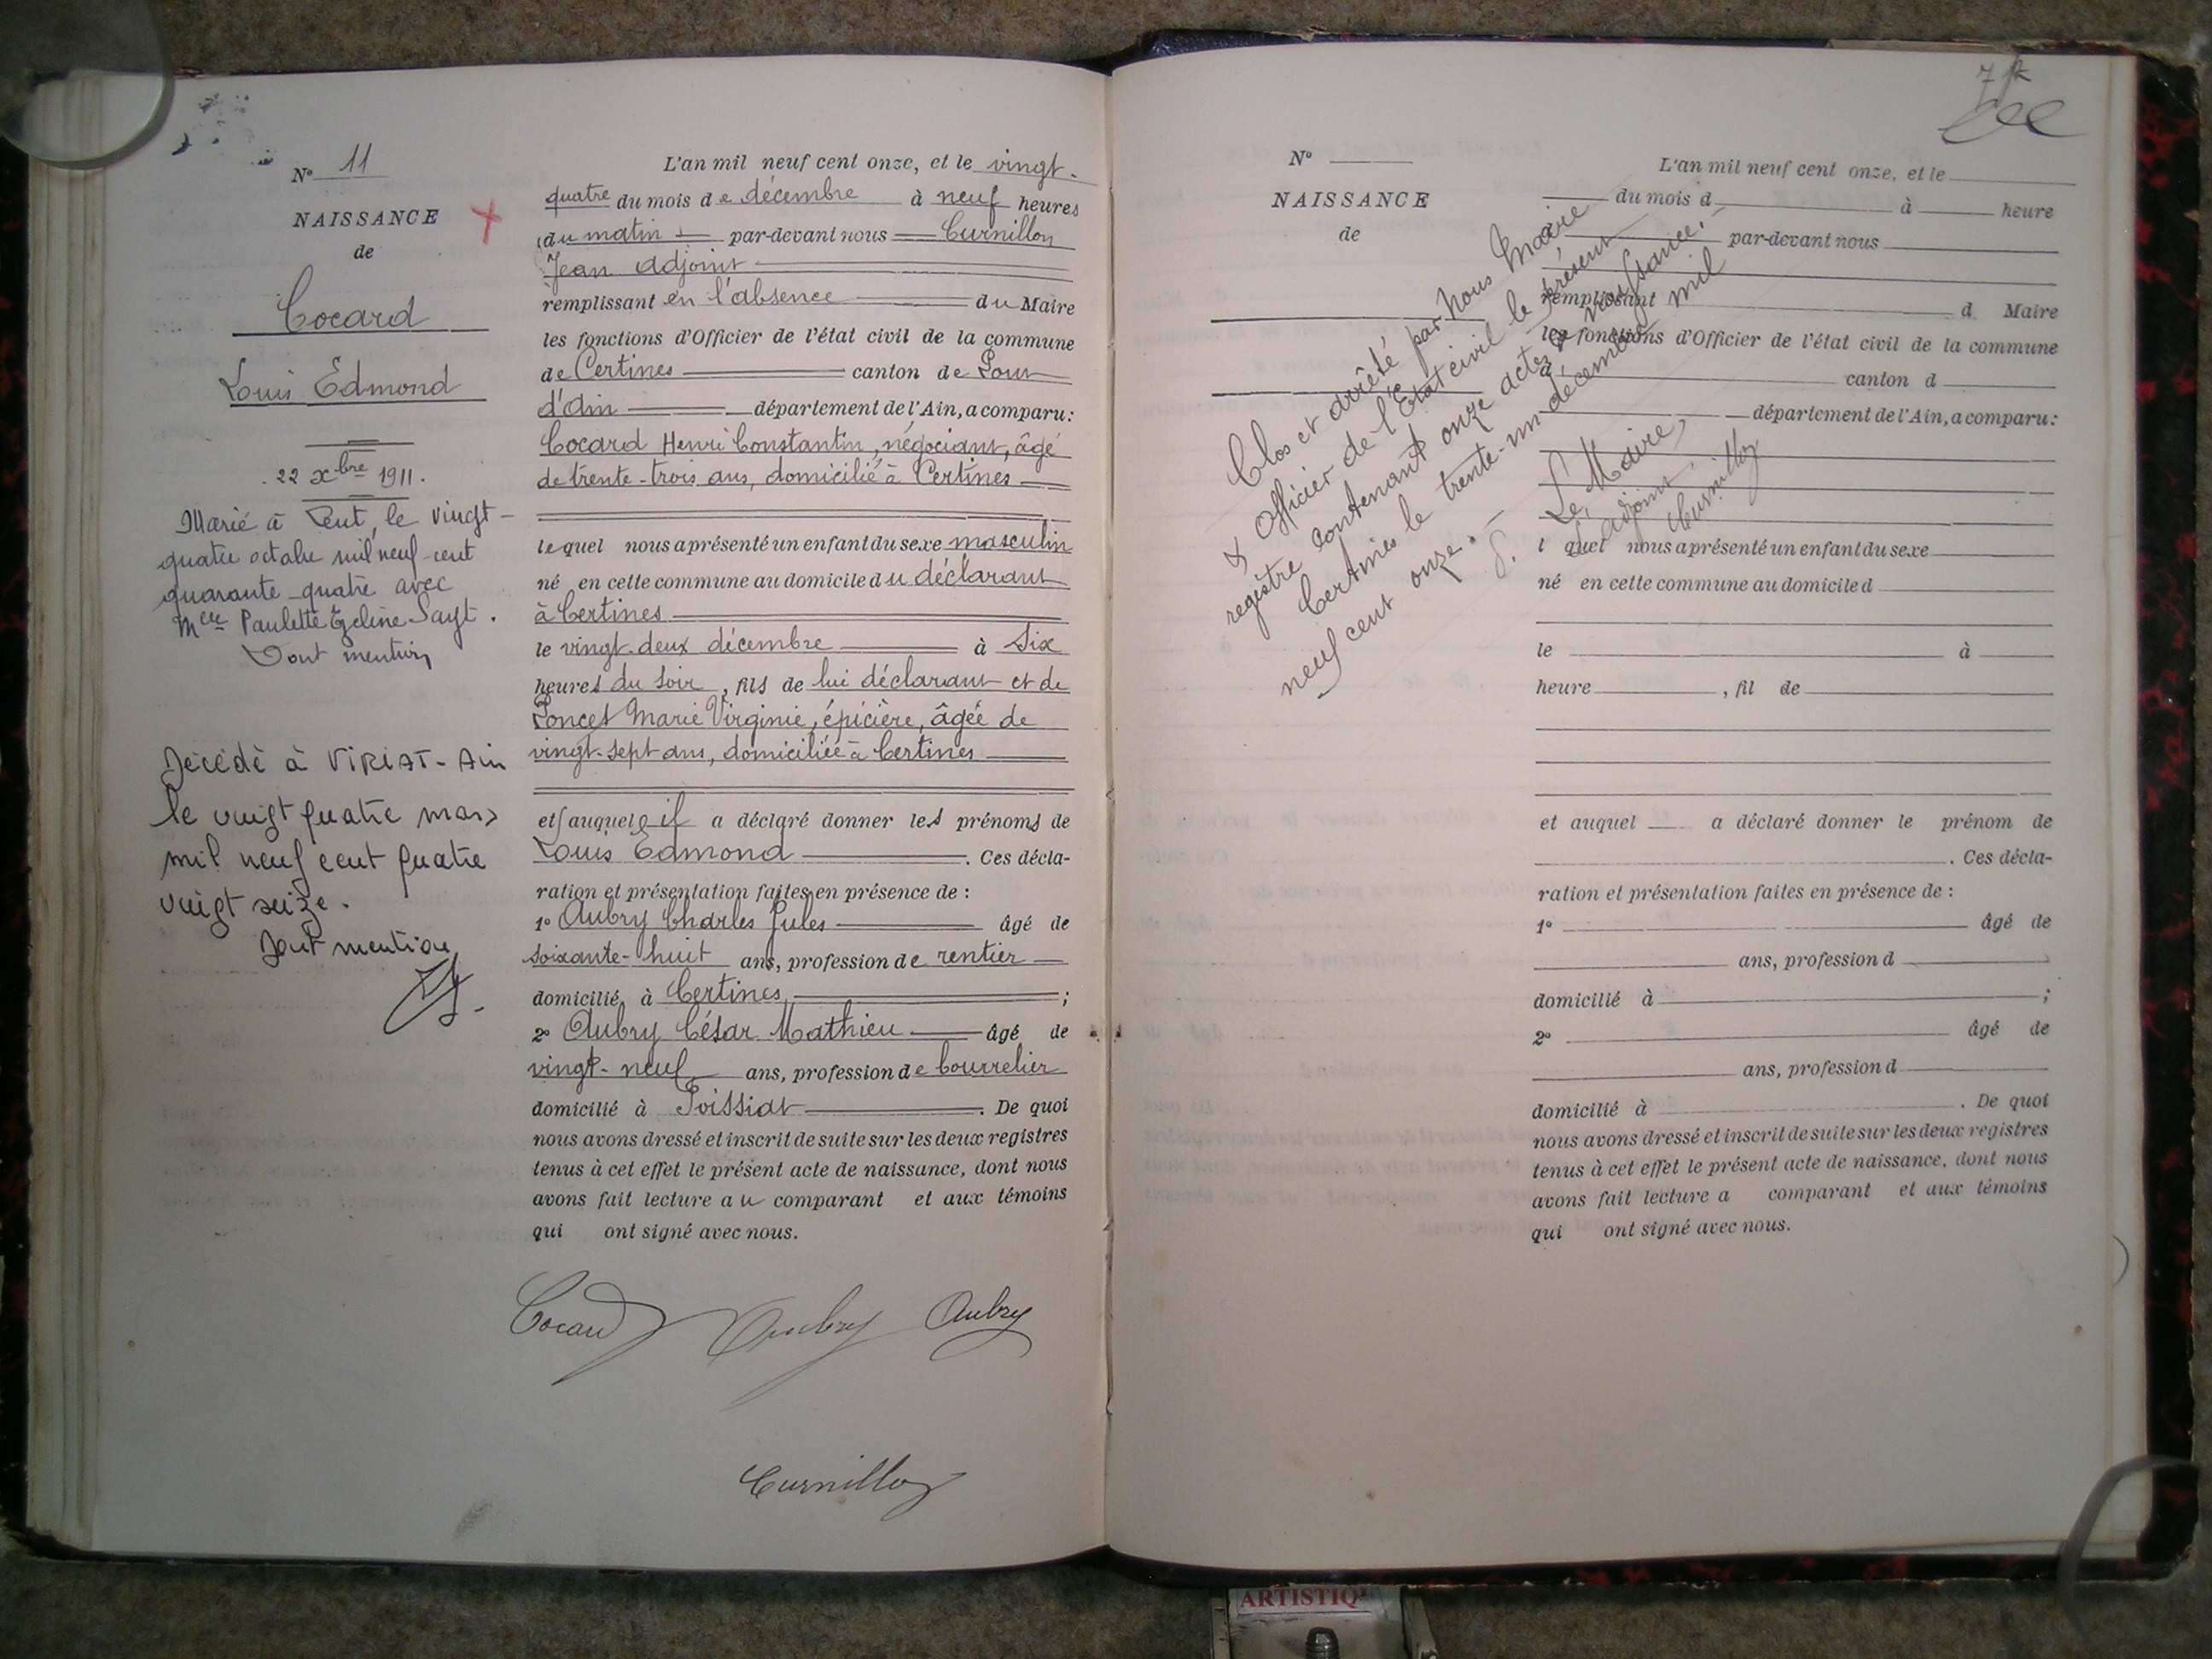 N° 11
NAISSANCE
de
Cocard
Louis Edmond
22 xbre 1911.
Marié à Ceut, le vingt-
quatre octobre mil neuf cent
quarante-quatre avec
Mlle Paulette Sayt.
Dont mention
Décédé à VIRIAT-Ain
le vingt quatre mars
mil neuf cent quatre
vingt seize.
Dont mention
L'an mil neuf cent onze, et le vingt-
quatre du mois de décembre à neuf heures
du matin par-devant nous Curnillon
Jean adjoint
remplissant en l'absence du Maire
les fonctions d'Officier de l'état civil de la commune
de Certines canton de Pont
d'Ain département de l'Ain, a comparu:
Cocard Henri Constantin, négociant, âgé
de trente-trois ans, domicilié à Certines
lequel nous a présenté un enfant du sexe masculin
né en cette commune au domicile du déclarant
à Certines
le vingt-deux décembre à Six
heures du soir, fils de lui déclarant et de
Poncet Marie Virginie, épicière, âgée de
vingt-sept ans, domiciliée à Certines
et auquel il a déclaré donner les prénoms de
Louis Edmond. Ces décla-
ration et présentation faites en présence de :
1° Aubry Charles Jules âgé de
soixante-huit ans, profession de rentier
domicilié à Certines ;
2° Aubry César Mathieu âgé de
vingt-neuf ans, profession de bourrelier
domicilié à Poissiat. De quoi
nous avons dressé et inscrit de suite sur les deux registres
tenus à cet effet le présent acte de naissance, dont nous
avons fait lecture au comparant et aux témoins
qui ont signé avec nous.
Cocard Aubry Aubry
Curnillon
7
N°
NAISSANCE
de
Clos et arrêté par Nous Maire
& Officier de l'Etat civil le présent
registre contenant onze actes de naissance.
Certines le trente-un décembre mil
neuf cent onze.
Le Maire,
L'adjoint
Curnillon
L'an mil neuf cent onze, et le
du mois d à heure
par-devant nous
remplissant d Maire
les fonctions d'Officier de l'état civil de la commune
d canton d
département de l'Ain, a comparu:
l quel nous a présenté un enfant du sexe
né en cette commune au domicile d
le à
heure , fil de
et auquel a déclaré donner le prénom de
. Ces décla-
ration et présentation faites en présence de :
1° âgé de
ans, profession d
domicilié à ;
2° âgé de
ans, profession d
domicilié à . De quoi
nous avons dressé et inscrit de suite sur les deux registres
tenus à cet effet le présent acte de naissance, dont nous
avons fait lecture a comparant et aux témoins
qui ont signé avec nous.
ARTISTIQ